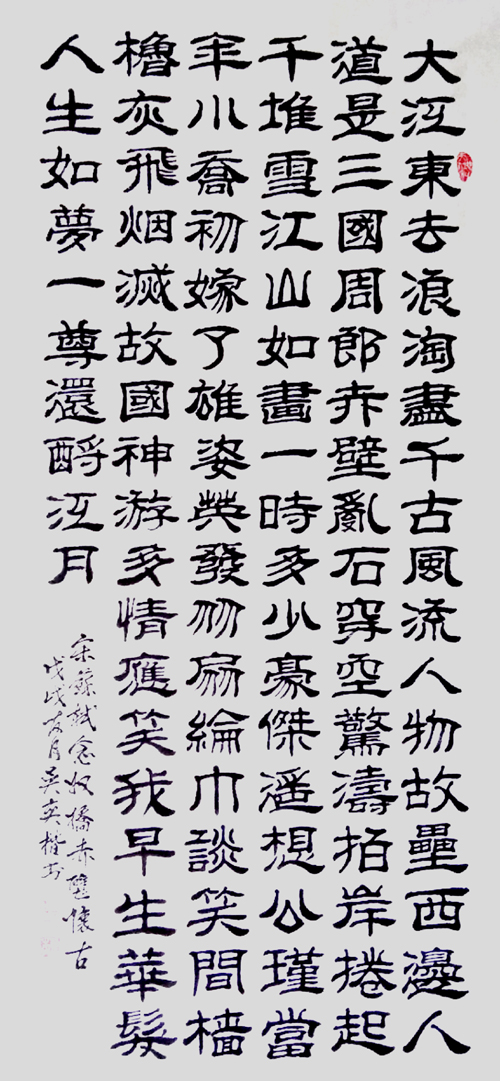 大江東去浪淘盡千古風流人物故壘西邊人
道是三國周郎赤壁亂石穿空驚濤拍岸捲起
千堆雪江山如畫一時多少豪傑遥想公瑾當
年小喬初嫁了雄姿英發羽扇綸巾談笑間檣
櫓灰飛烟滅故國神游多情應笑我早生華髮
人生如夢一尊還酹江月
宋蘇軾念奴嬌赤壁懷古
戊戌月吳奕楷书